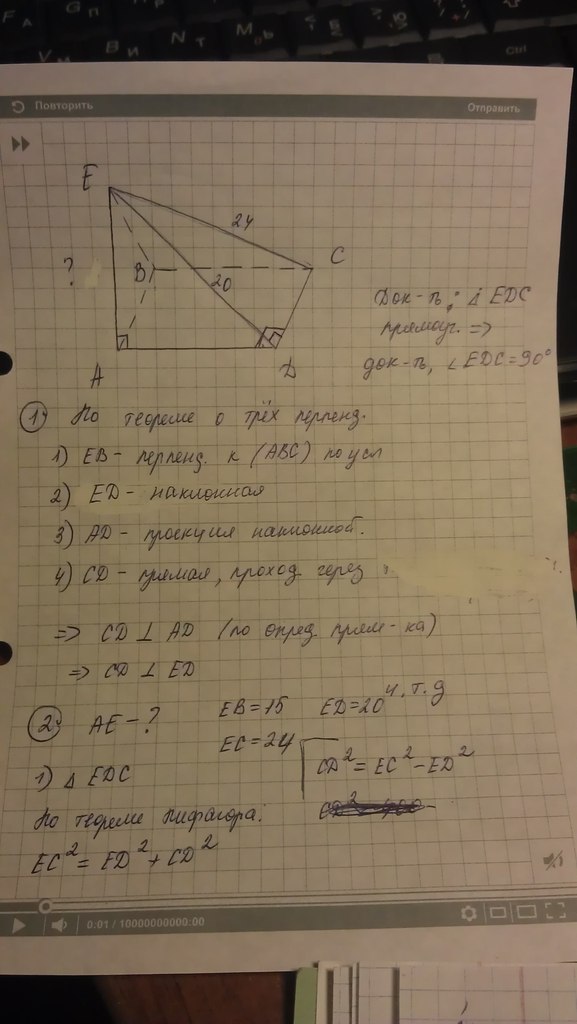 Повторить
Отправить
E
24
C
?
B
20
A
D
Док-ть: Δ EDC
прямоуг. =>
док-ть, ∠EDC=90°
1) По теореме о трёх перпенд.
1) EB - перпенд. к (ABC) по усл
2) ED - наклонная
3) AD - проекция наклонной.
4) CD - прямая, проход через
=> CD ⊥ AD (по опред. прям-ка)
=> CD ⊥ ED
ч.т.д
2) AE - ? EB=15 ED=20
EC=24
1) Δ EDC
CD²=EC²-ED²
По теореме Пифагора:
EC²=ED²+CD²
0:01 / 10000000000:00
Ctrl